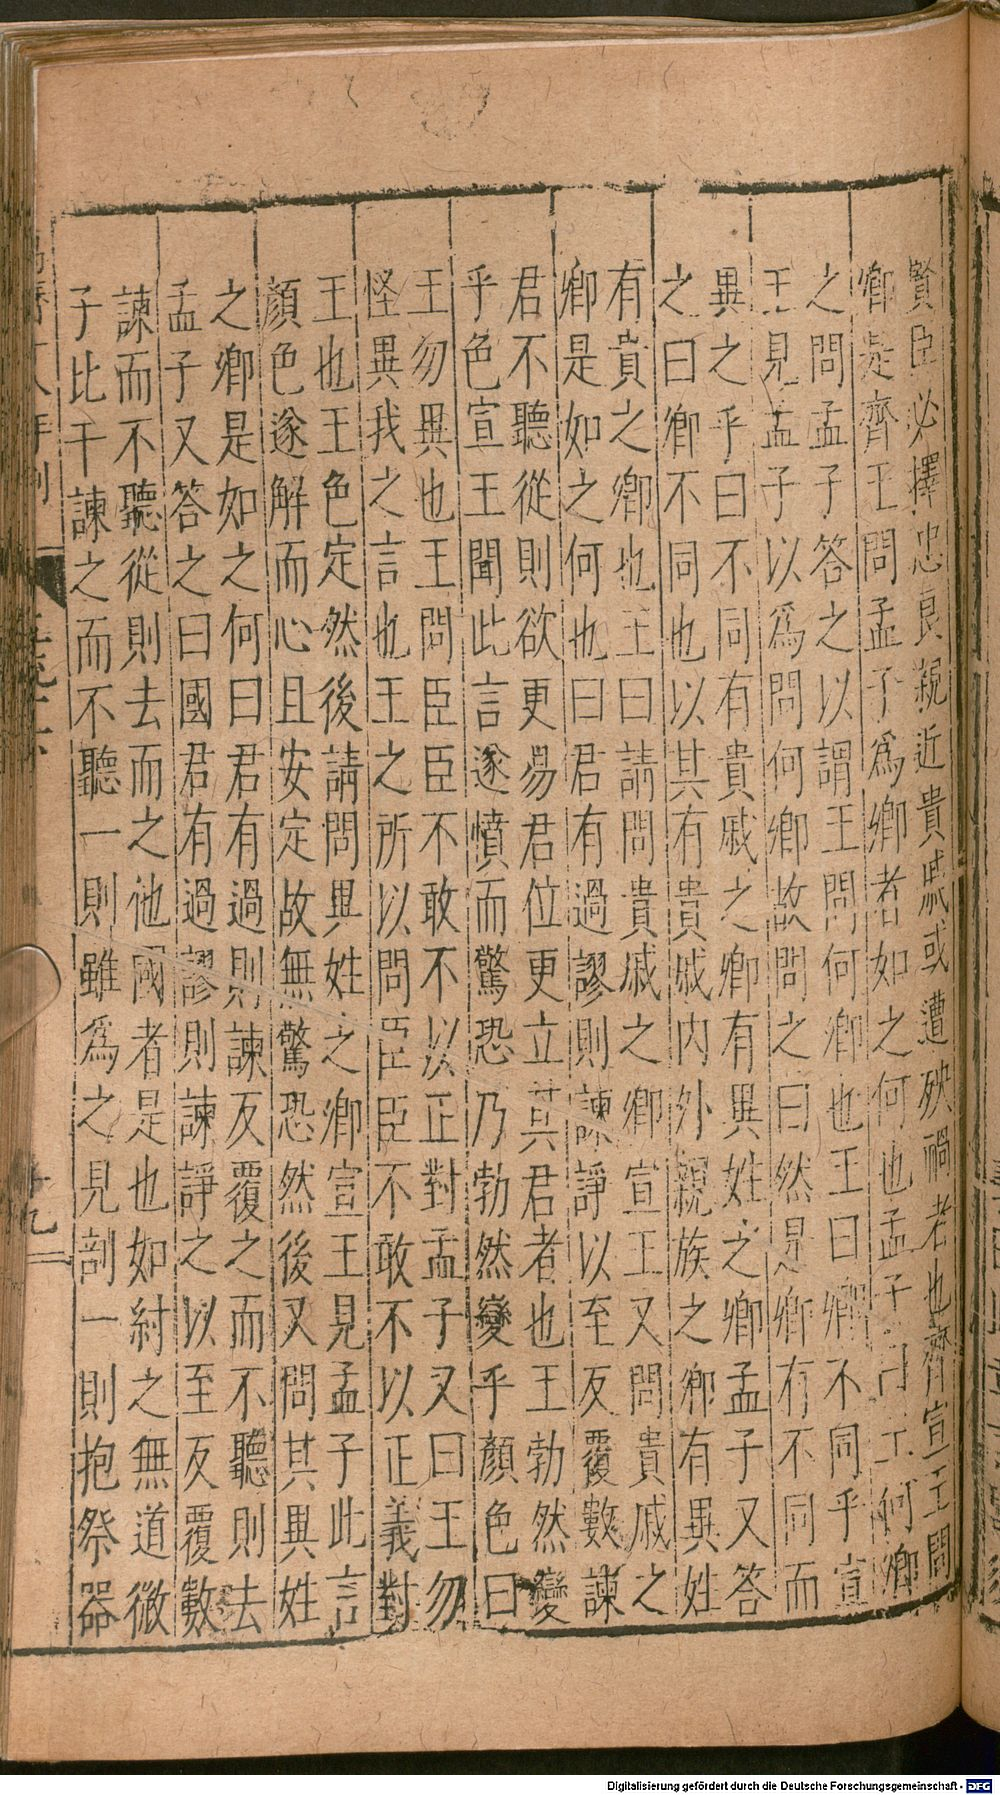 賢臣必擇忠良親近貴戚或遭殃禍者也齊宣王問
卿是齊王問孟子爲卿者如之何也孟子曰王何卿
之問孟子答之以謂王問何卿也王曰卿不同乎宣
王見孟子以爲問何卿故問之曰然是卿有不同而
異之乎曰不同有貴戚之卿有異姓之卿孟子又答
之曰卿不同也以其有貴戚内外親族之卿有異姓
有貴之卿也王曰請問貴戚之卿宣王又問貴戚之
卿是如之何也曰君有過謬則諫諍以至反覆數諫
君不聽從則欲更易君位更立其君者也王勃然變
乎色宣王聞此言遂憤而驚恐乃勃然變乎顏色曰
王勿異也王問臣臣不敢不以正對孟子又曰王勿
怪異我之言也王之所以問臣臣不敢不以正義對
王也王色定然後請問異姓之卿宣王見孟子此言
顏色遂解而心且安定故無驚恐然後又問其異姓
之卿是如之何曰君有過則諫反覆之而不聽則去
孟子又答之曰國君有過謬則諫諍之以至反覆數
諫而不聽從則去而之他國者是也如紂之無道微
子比干諫之而不聽一則雖爲之見剖一則抱祭器
Digitalisierung gefördert durch die Deutsche Forschungsgemeinschaft - DFG